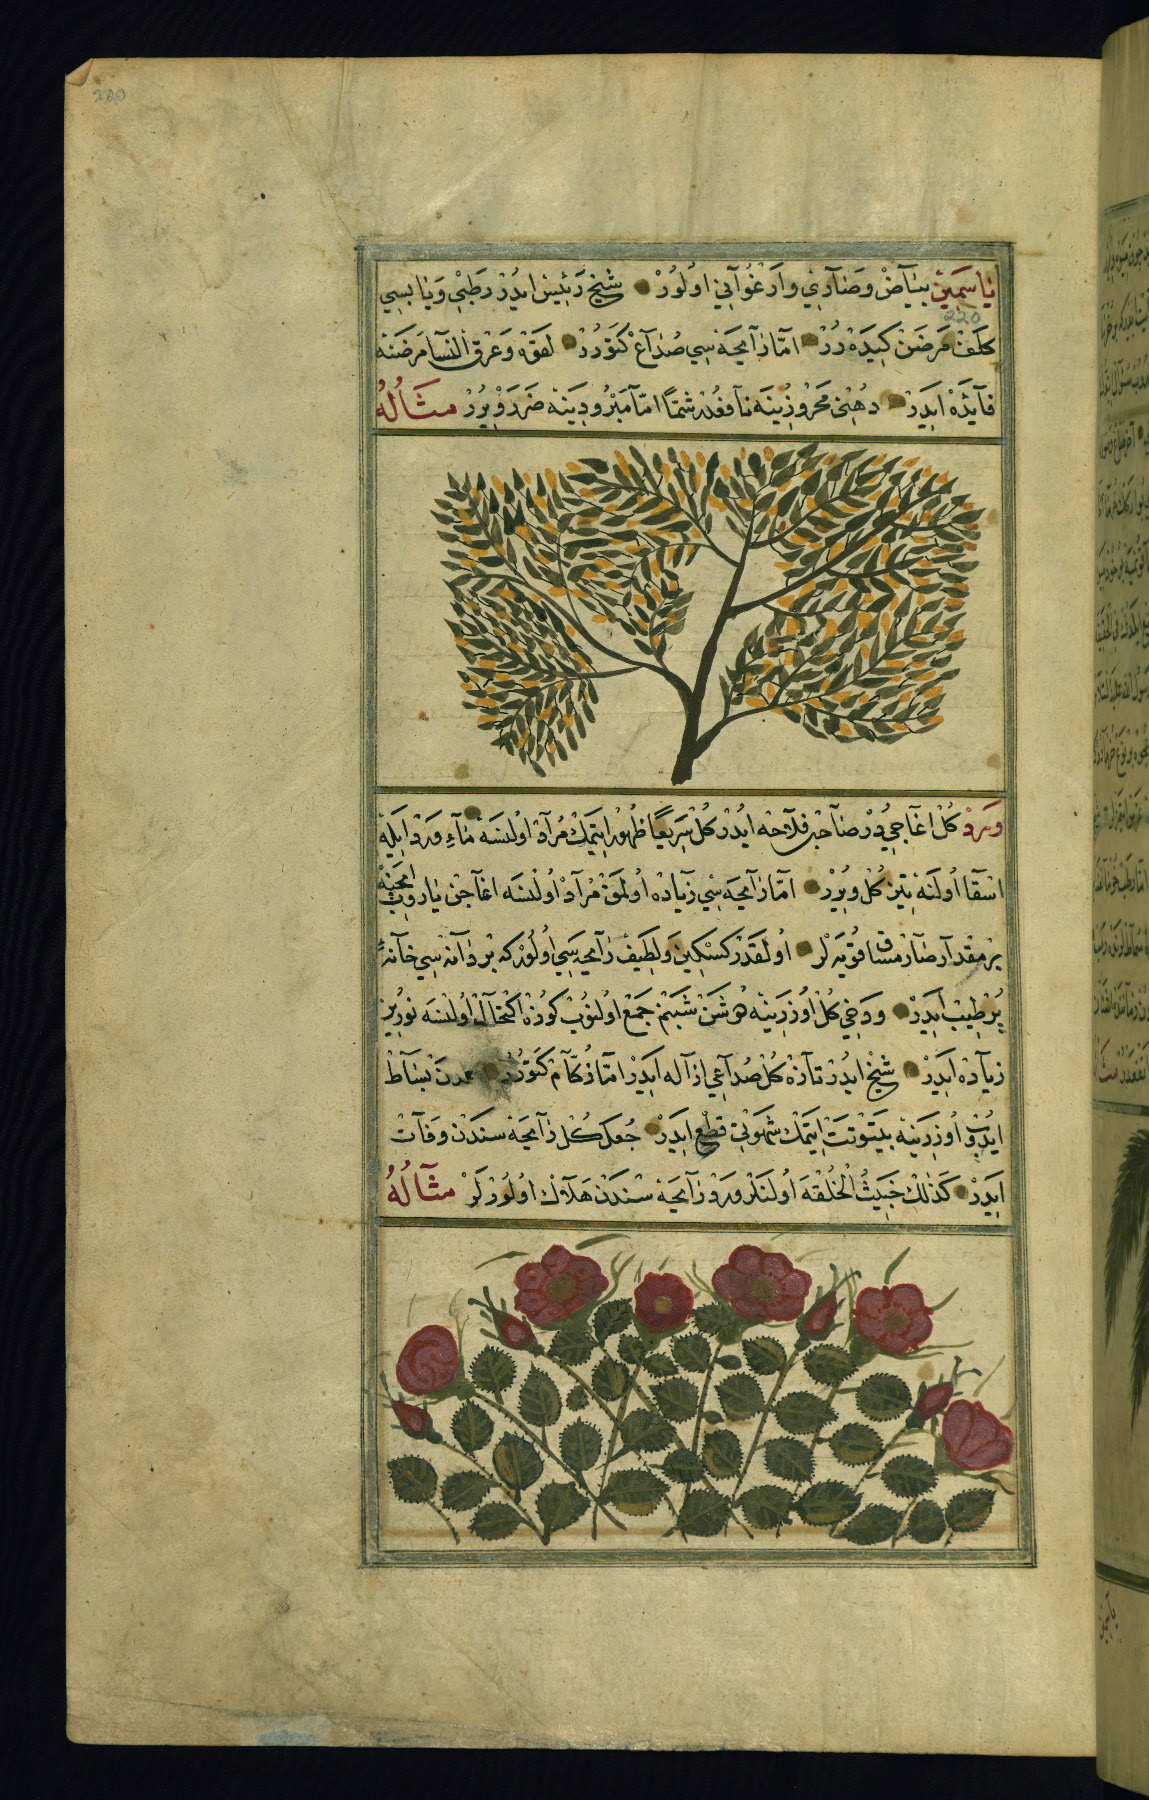 220
ياسمين بياض وصاري وارغواني اولور شيخ رئيس ايدر رطبي ويابسي
220
كلف مرضن كيده رر اما رايحه سي صداع كتورر لقوه وعرق النسا مرضنه
فائده ايدر دهني محروزينه نافعدر شتا اما مبرودينه ضرر ويرر مثاله
ورد كل اغاجيدر صاحب فلاحه ايدر كل سريعا ظهور ايتمك مراد اولنسه ماء ورد ايله
اسقا اولنه تيز كل ويرر اما رايحه سي زياده اولمق مراد اولنسه اغاجن ياروب ايچنه
بر مقدار صارمساق قويه لر اولقدر كسكين ولطيف رايحه سي اولور كه بر دانه سي خانه يي
پر طيب ايدر ودخي كل اوزرينه دوشن شبنم جمع اولنوب كوزه اكتحال اولنسه نورين
زياده ايدر شيخ ايدر تازه كل صداعي ازاله ايدر اما زكام كتورر بساط
ايدوب اوزرينه بيتوتت ايتمك شهوتي قطع ايدر جعل كل رايحه سندن وفات
ايدر كذلك خبيث الخلقه اولنلر ورد رايحه سندن هلاك اولورلر مثاله